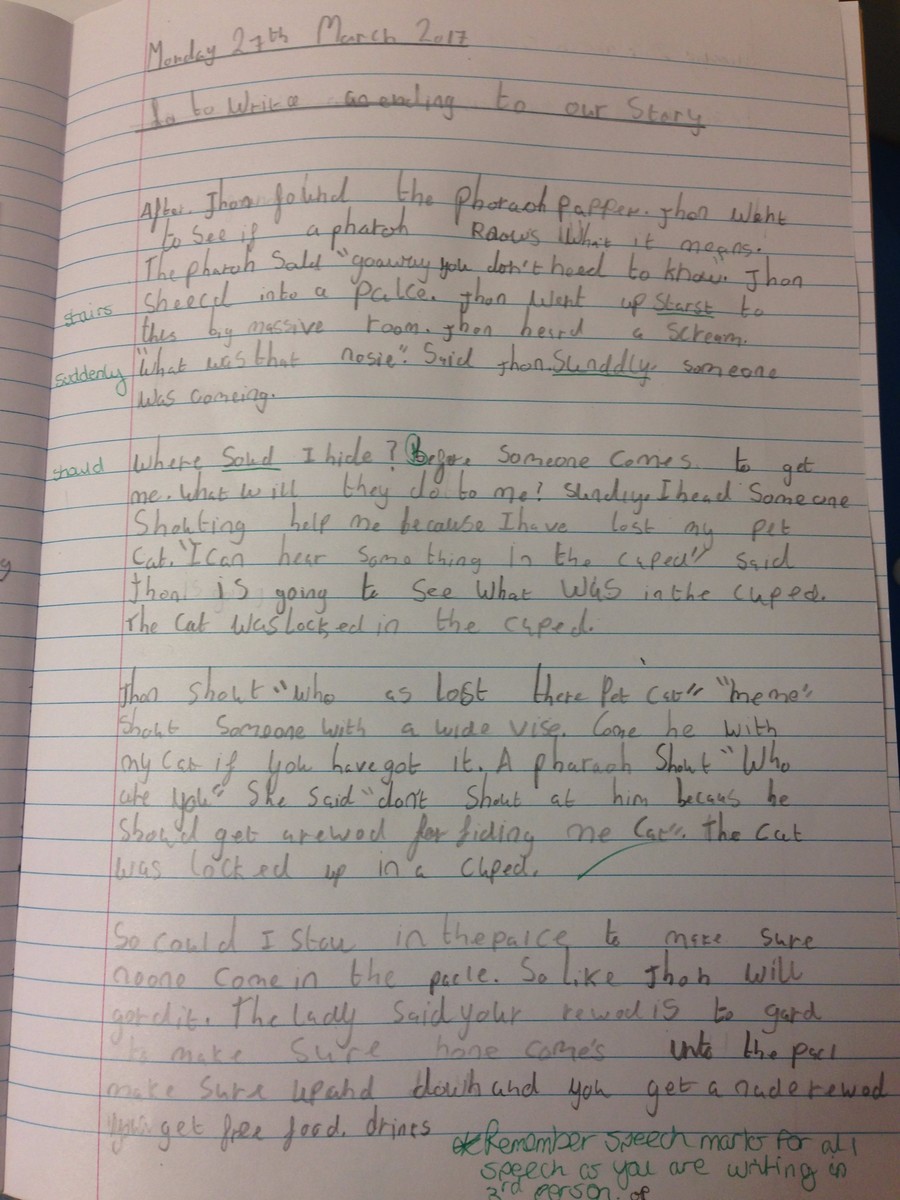 Monday 27th March 2017
to write an ending to our Story
After Jhon found the Pharaoh Papper. Jhon Went
to see if a pharoh Knows What it means.
The pharoh Said "goawry you don't need to know. Jhon
stairs
Sheecd into a Palce. Jhon Went up Starst to
this big massive room. Jhon heard a scream.
suddenly
"What was that nosie". Said Jhon. Sunddly someone
was comeing.
should
Where Soud I hide? Before Someone Comes to get
me. What will they do to me? Sundly I head Someone
Shouting help me because I have lost my pet
Cat. "I Can hear Something in the cuped" said
Jhon is going to See What Was in the cuped.
The Cat Was locked in the cuped.
Jhon Shout "who as Lost there Pet Cat" "meme"
Shout Someone with a wide vise. Come he with
my Cat if you have got it. A pharaoh Shout "Who
are you" She Said "don't Shout at him becaus he
Should get a rewod for fiding me Cat". The Cat
was locked up in a Cuped.
So Could I Stay in the palce to make Sure
noone Come in the pacle. So like Jhon will
gard it. The lady Said your rewod is to gard
to make Sure none come's unto the pacl
make Sure up and down and you get a rewod
you get free food. drincs
Remember speech marks for all
speech as you are writing in
3rd person.